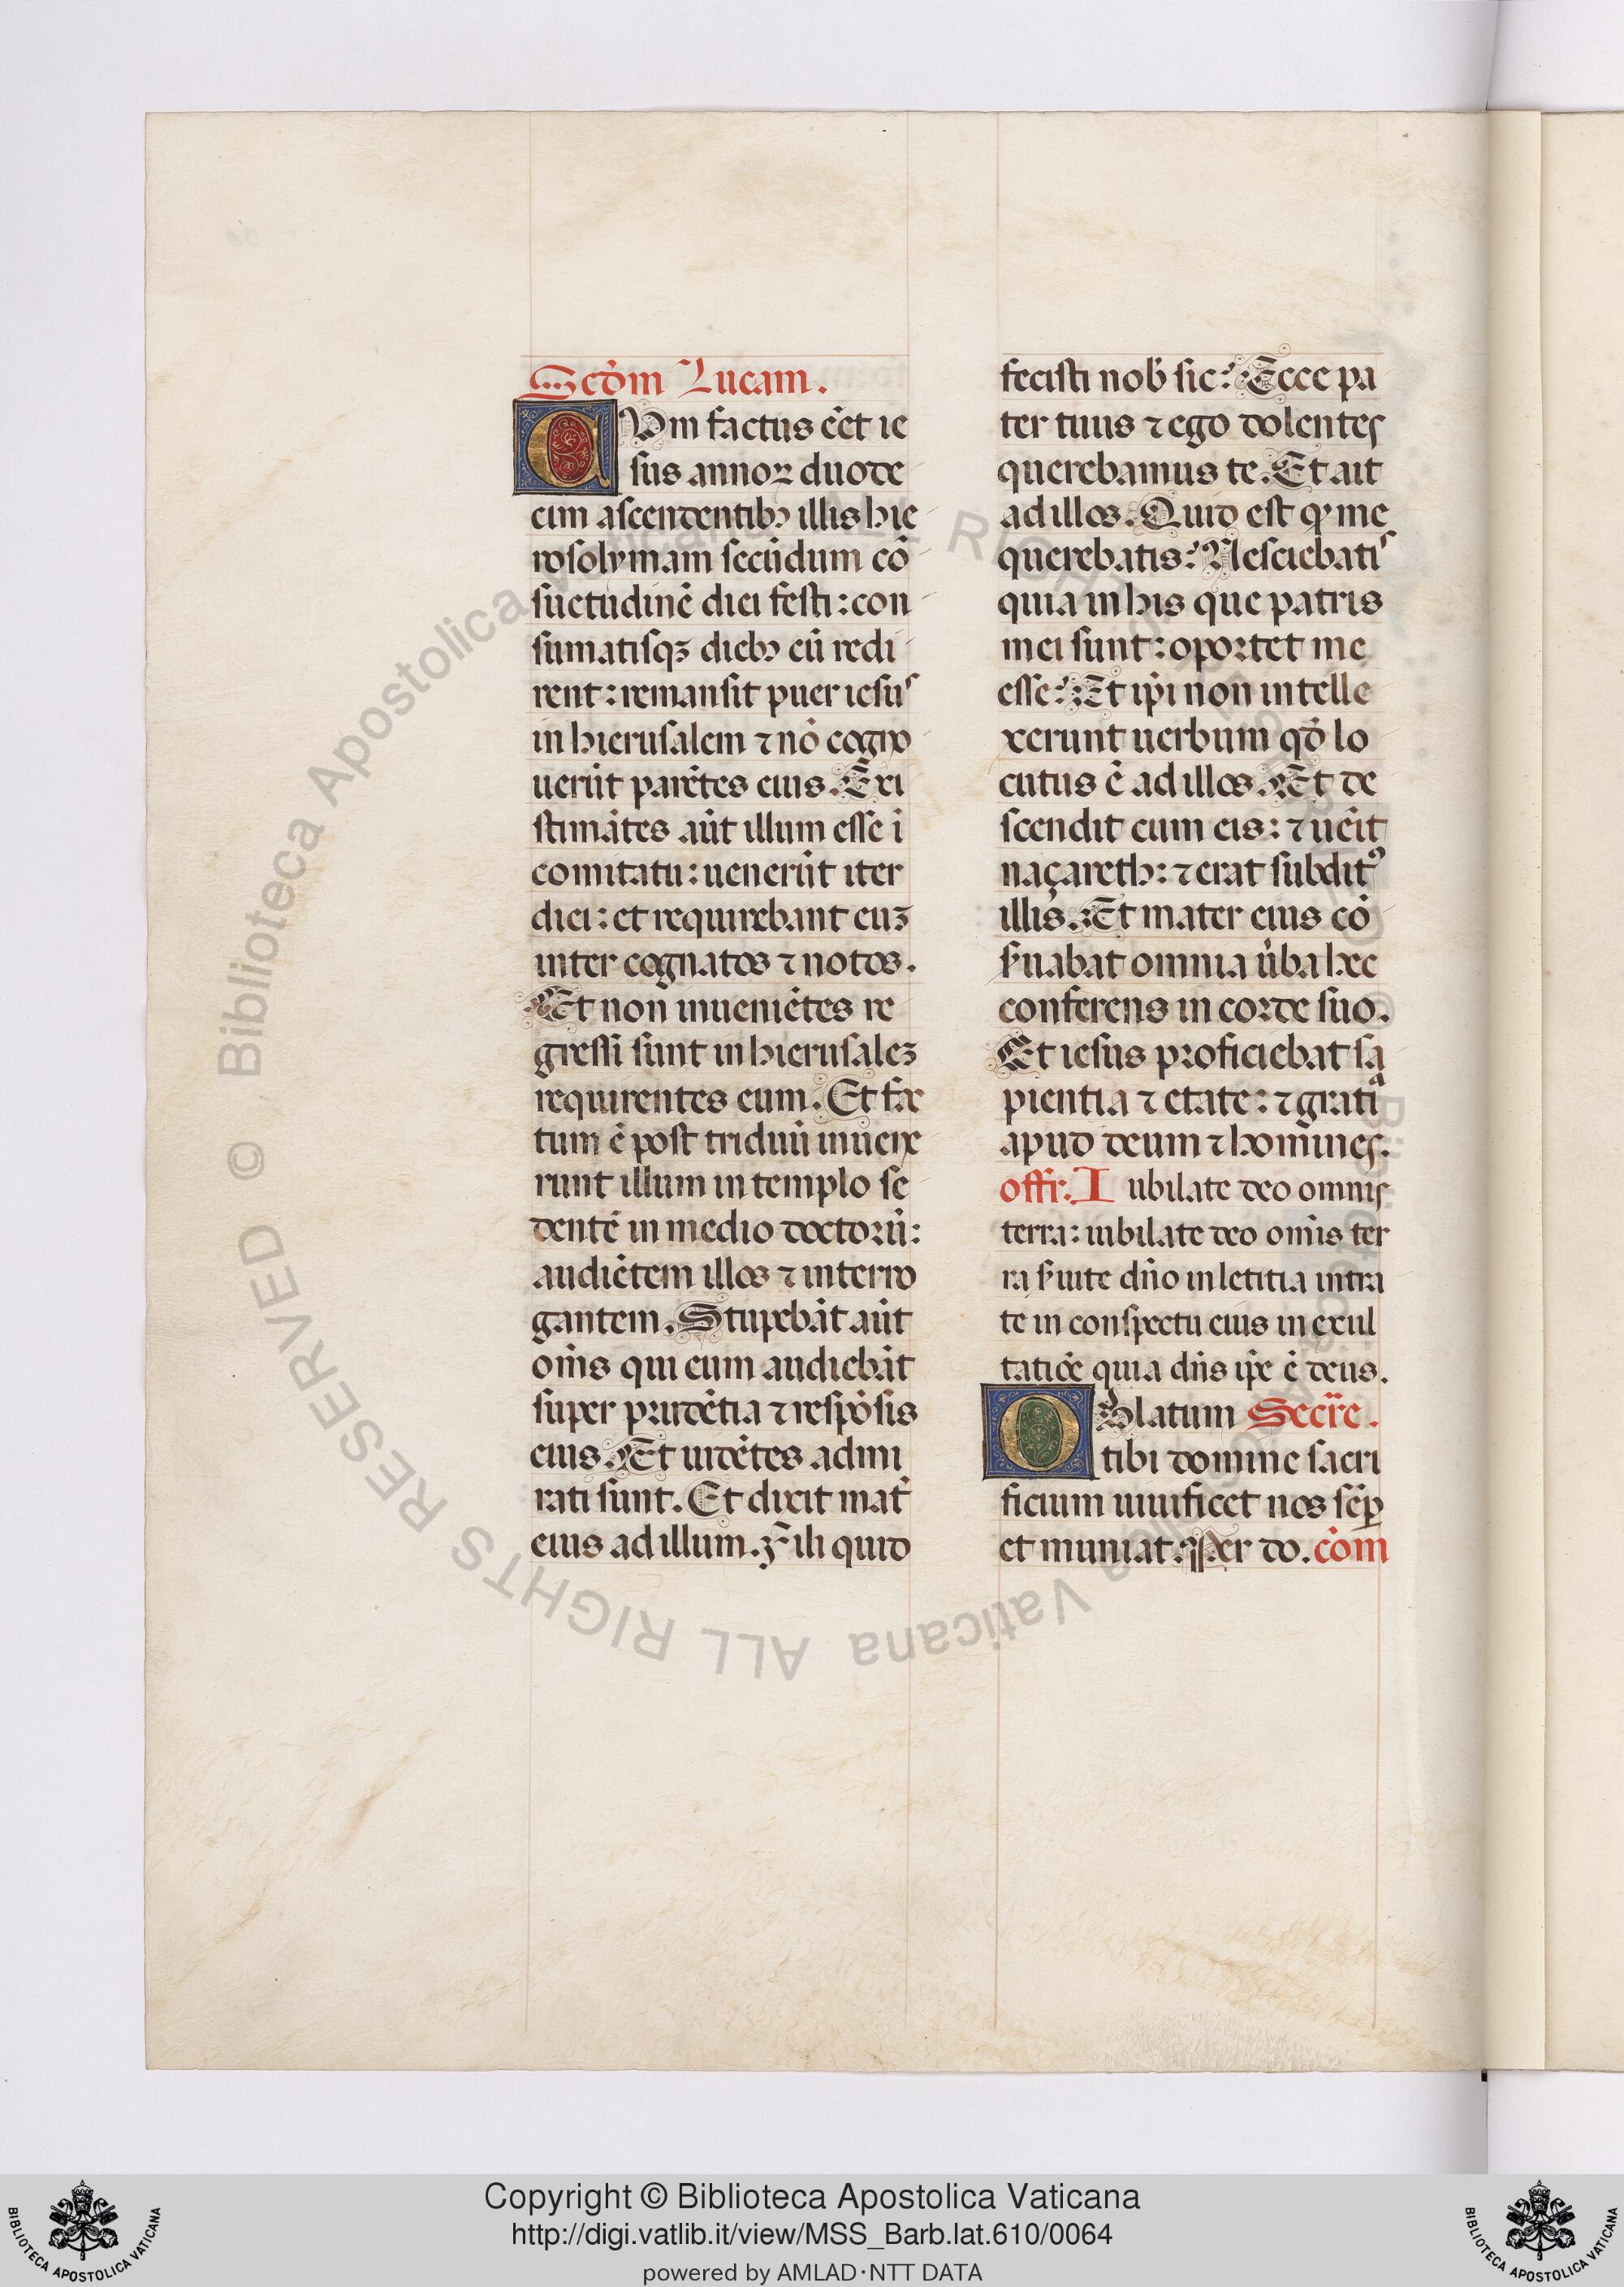 Scd̄m Lucam.
CVm factus eēt ie
sus annoꝝ duode
cim ascendentibꝫ illis hie
rosolymam secūdum cō
suetudinē diei festi: con
sumatisqꝫ diebꝫ cū redi
rent: remansit puer iesus
in hierusalem ⁊ nō cogno
uerūt parētes eius. Exi
stimātes aūt illum esse ī
comitatu: uenerūt iter
diei: et requirebant euꝫ
inter cognatos ⁊ notos.
Et non inueniētes re
gressi sunt in hierusaleꝫ
requirentes eum. Et fac
tum ē post triduū inuene
runt illum in templo se
dentē in medio doctorū:
audiētem illos ⁊ interro
gantem. Stupebāt aūt
om̄s qui eum audiebāt
super prudētia ⁊ respōsis
eius. Et uidētes admi
rati sunt. Et dixit mat̄
eius ad illum. Fili quid
fecisti nob̄ sic? Ecce pa
ter tuus ⁊ ego dolentes
querebamus te. Et ait
ad illos. Quid est ꝙ me
querebatis? Nesciebatis
quia in his que patris
mei sunt: oportet me
esse? Et ip̄i non intelle
xerunt uerbum qd̄ lo
cutus ē ad illos. Et de
scendit cum eis: ⁊ uēit
naçareth: ⁊ erat subditꝰ
illis. Et mater eius cō
s̄uabat omnia ūba hec
conferens in corde suo.
Et iesus proficiebat sa
pientia ⁊ etate: ⁊ gratia
apud deum ⁊ homines.
offr̄. Iubilate deo omnis
terra: iubilate deo om̄is ter
ra s̄uite dn̄o in letitia intra
te in conspectu eius in exul
tatiōe quia dn̄s ip̄e ē deus.
OBlatum Secre.
tibi domine sacri
ficium uiuificet nos sēꝑ
et muniat. Per do. cōm
© Biblioteca Apostolica Vaticana ALL RIGHTS RESERVED
Copyright © Biblioteca Apostolica Vaticana
http://digi.vatlib.it/view/MSS_Barb.lat.610/0064
powered by AMLAD·NTT DATA
BIBLIOTECA APOSTOLICA VATICANA
BIBLIOTECA APOSTOLICA VATICANA